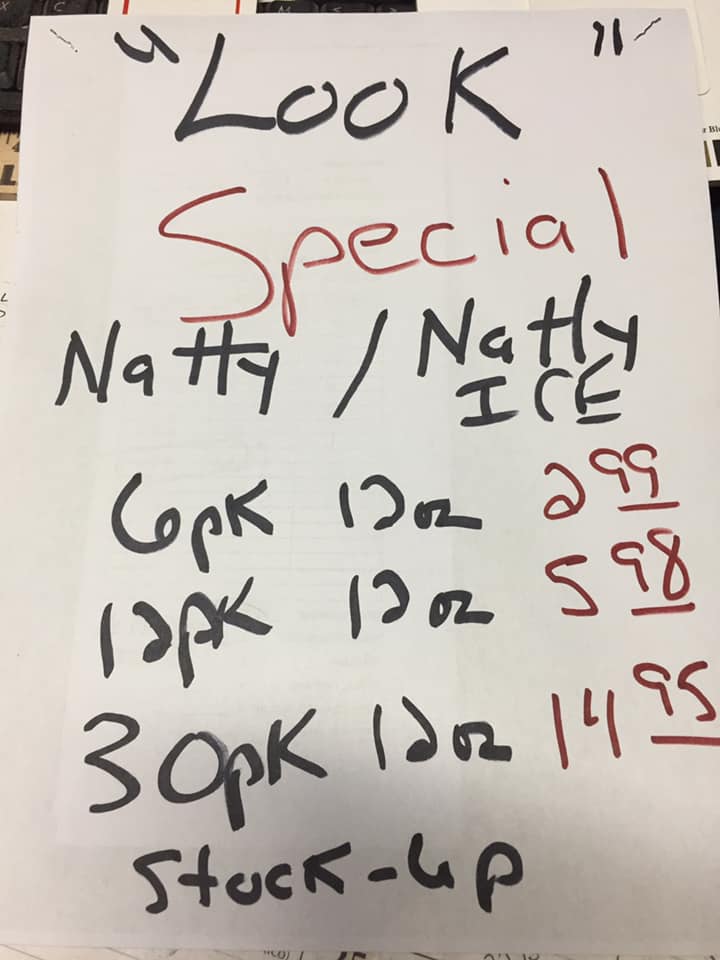 "Look"
Special
Natty / Natty
ICE
6pk 12oz 2 99
12pk 12oz 5 98
30pk 12oz 14 95
Stock-up